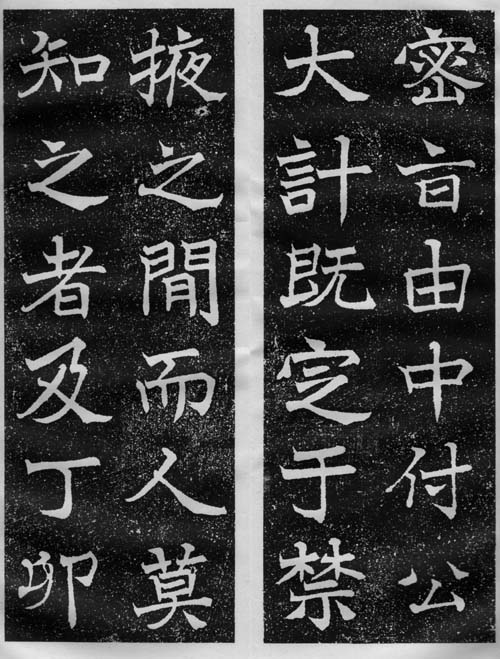 密旨由中付公
大計既定于禁
掖之間而人莫
知之者及丁卯